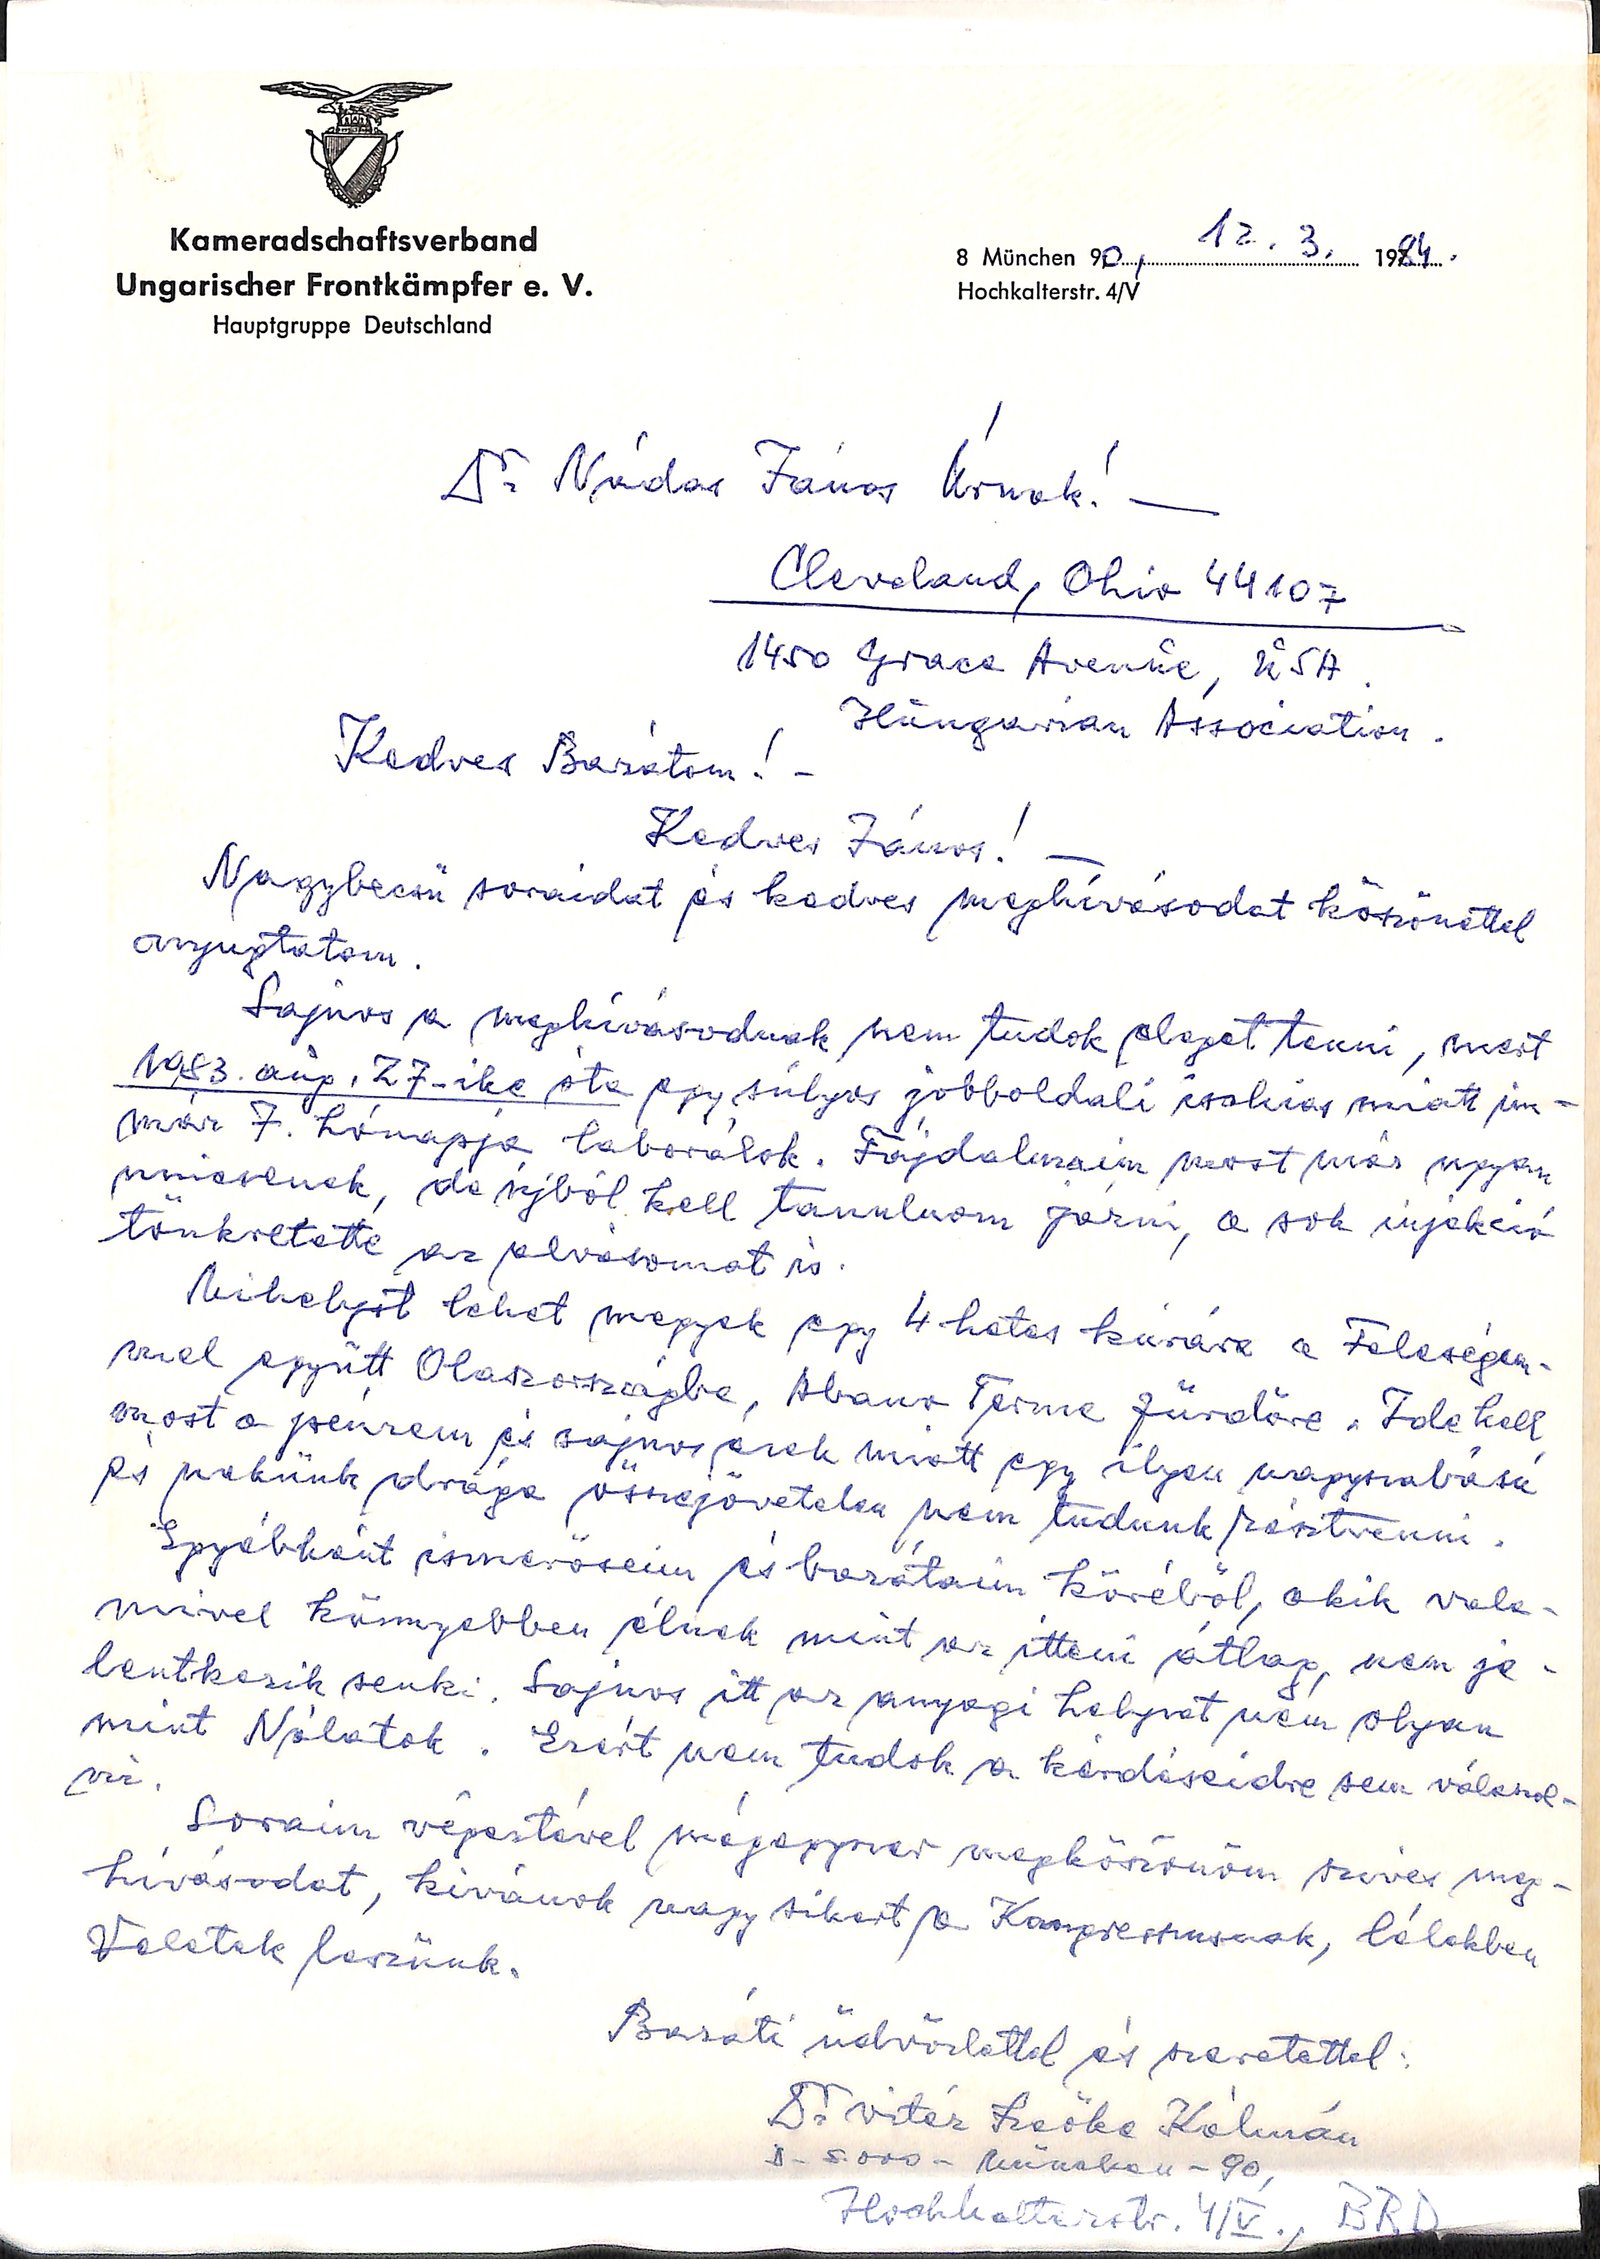 Kameradschaftsverband
Ungarischer Frontkämpfer e. V.
Hauptgruppe Deutschland
8 München 90, 12. 3. 1984.
Hochkalterstr. 4/V
Dr Nádas János Úrnak! —
Cleveland, Ohio 44107
1450 Grace Avenue, USA.
Hungarian Association.
Kedves Barátom! -
Kedves János! —
Nagybecsü soraidat és kedves meghívásodat köszönettel
anyugtatom.
Sajnos a meghívásodnak nem tudok eleget tenni, mert
1983. aug. 27-ike óta egy súlyos jobboldali ischias miatt im-
már 7. hónapja laborálok. Fájdalmaim most már ugyan
nincsenek, de újból kell tanulnom járni, a sok injekció
tönkretette az alvásomat is.
Mihelyst lehet megyek egy 4 hetes kúrára a Feleségem-
mel együtt Olaszországba, Abano Terme fürdőre. Ide kell
most a pénzem és sajnos ezek miatt egy ilyen nagyszabású
és nekünk drága összejövetelen nem tudunk résztvenni.
Egyébként ismerőseim és barátaim köréből, akik vala-
mivel könnyebben élnek mint az itteni átlag, nem je-
lentkezik senki. Sajnos itt az anyagi helyzet nem olyan
mint Nálatok. Ezért nem tudok a kérdéseidre sem válaszol-
ni.
Soraim végeztével mégegyszer megköszönöm szives meg-
hívásodat, kivánok nagy sikert a Kongresszusnak, lélekben
Veletek leszünk.
Baráti üdvözlettel és szeretettel:
Dr vitéz Szőke Kálmán
D-8000-München-90,
Hochkalterstr. 4/V., BRD